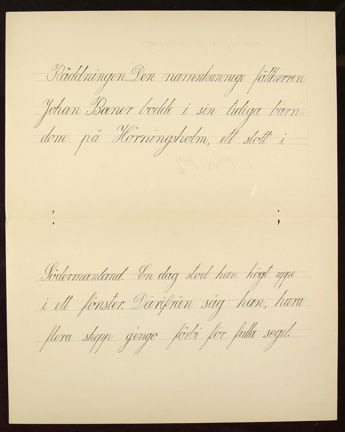 Räddningen. Den namnkunnige fältherren
Johan Baner bodde i sin tidiga barn-
dom på Hörningsholm, ett slott i
Södermanland. En dag stod han högt uppe
i ett fönster. Därifrån såg han, huru
flera skepp gingo förbi för fulla segel.